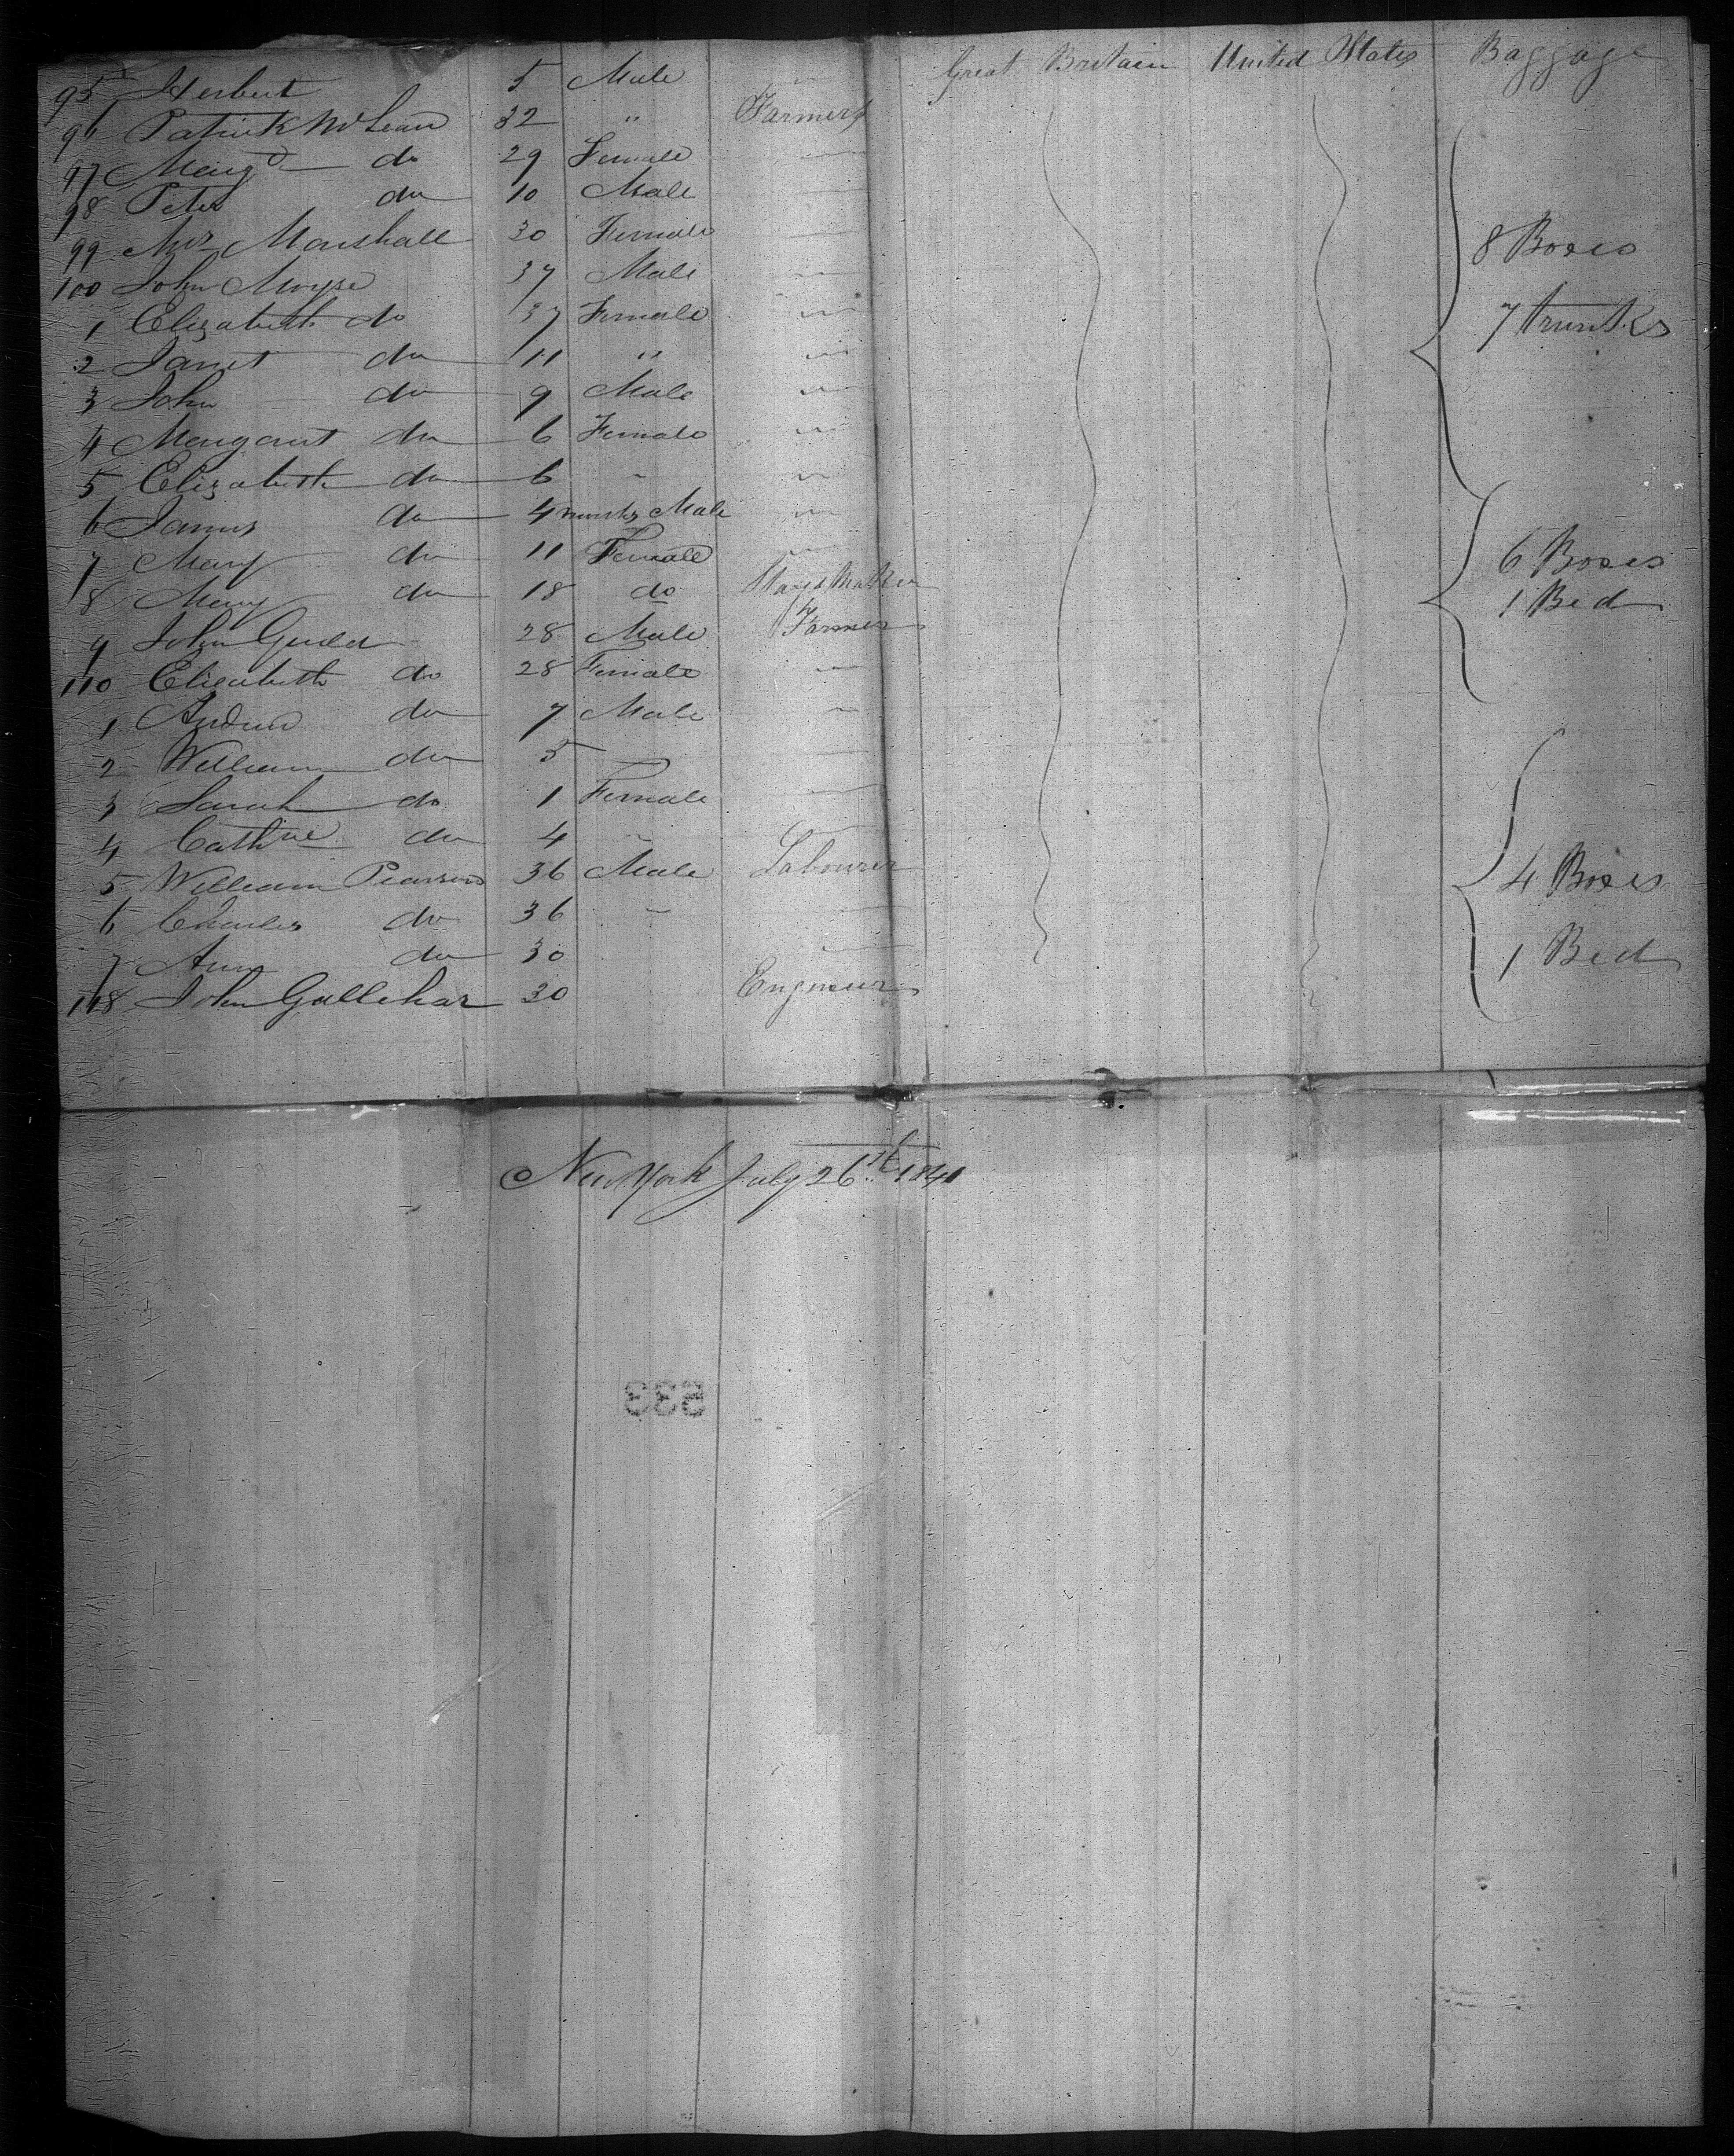 95 Herbert 5 Male " Great Britain United States Baggage
96 Patrick McLean 32 " Farmer
97 Margt do 29 Female "
98 Peter do 10 Male "
99 Mrs Marshall 30 Female " 8 Boxes
100 John Moyse 37 Male "
1 Elizabeth do 37 Female " 7 trunks
2 Janet do 11 " "
3 John do 9 Male "
4 Margaret do 6 Female "
5 Elizabeth do 6 " "
6 James do 4 months Male "
7 Mary do 11 Female " 6 Boxes
8 Mary do 18 do Stays Maker 1 Bed
9 John 28 Male Farmer
110 Elizabeth do 28 Female "
1 Andrew do 7 Male "
2 William do 5 "
3 Sarah do 1 Female "
4 Cathne do 4 " "
5 William Pearson 36 Male Labourer 4 Boxes
6 Charles do 36 " "
7 Ann do 30 " 1 Bed
118 John Gallehar 30 Engineer
New York July 26th 1841
533